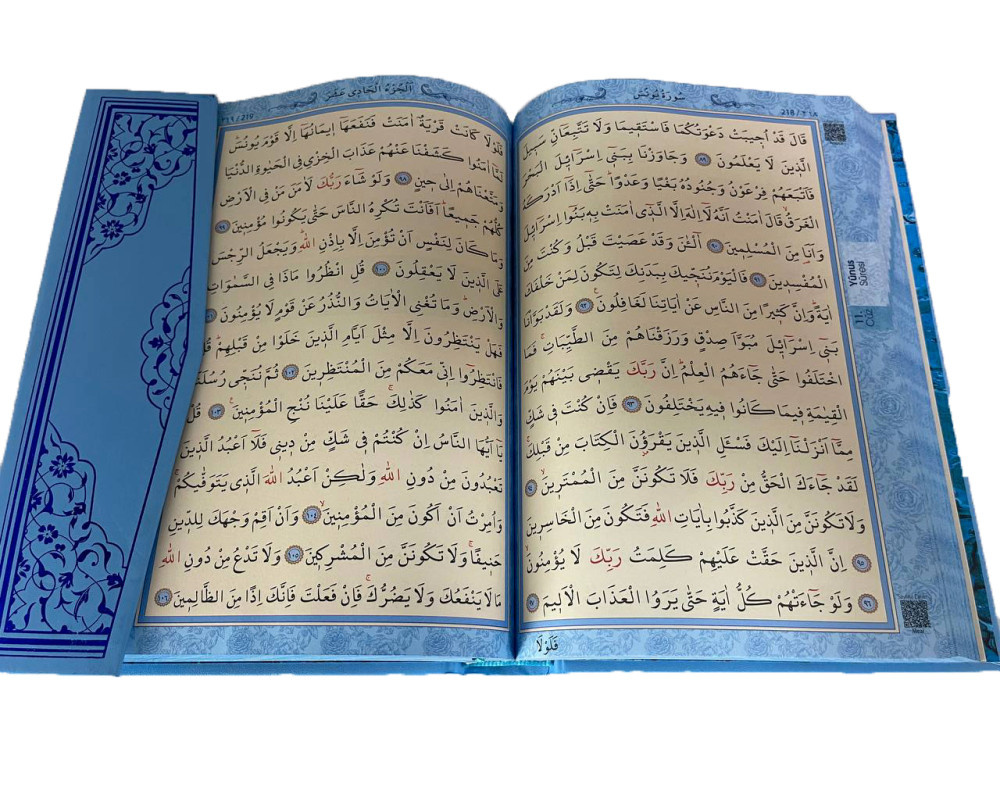 سُورَةُ يُونُسَ
218 / ٢١٨
قَالَ قَدْ اُجِيبَتْ دَعْوَتُكُمَا فَاسْتَقِيمَا وَلَا تَتَّبِعَانِّ سَبِيلَ
الَّذِينَ لَا يَعْلَمُونَ ٨٩ وَجَاوَزْنَا بِبَنِٓي اِسْرَٓائِلَ الْبَحْرَ
فَاَتْبَعَهُمْ فِرْعَوْنُ وَجُنُودُهُ بَغْيًا وَعَدْوًا حَتّٰٓى اِذَٓا اَدْرَكَهُ
الْغَرَقُ قَالَ اٰمَنْتُ اَنَّهُ لَٓا اِلٰهَ اِلَّا الَّذِٓي اٰمَنَتْ بِهِ بَنُٓوا اِسْرَٓائِلَ
وَاَنَا۬ مِنَ الْمُسْلِمِينَ ٩٠ اٰلْـٰٔنَ وَقَدْ عَصَيْتَ قَبْلُ وَكُنْتَ مِنَ
الْمُفْسِدِينَ ٩١ فَالْيَوْمَ نُنَجِّيكَ بِبَدَنِكَ لِتَكُونَ لِمَنْ خَلْفَكَ
اٰيَةًۜ وَاِنَّ كَثِيرًا مِنَ النَّاسِ عَنْ اٰيَاتِنَا لَغَافِلُونَ ٩٢ وَلَقَدْ بَوَّأْنَا
بَنِٓي اِسْرَٓائِلَ مُبَوَّاَ صِدْقٍ وَرَزَقْنَاهُمْ مِنَ الطَّيِّبَاتِۚ فَمَا
اخْتَلَفُوا حَتّٰى جَٓاءَهُمُ الْعِلْمُۜ اِنَّ رَبَّكَ يَقْضِي بَيْنَهُمْ يَوْمَ
الْقِيٰمَةِ فِيمَا كَانُوا فِيهِ يَخْتَلِفُونَ ٩٣ فَاِنْ كُنْتَ فِي شَكٍّ
مِمَّٓا اَنْزَلْنَٓا اِلَيْكَ فَسْـَٔلِ الَّذِينَ يَقْرَؤُ۫نَ الْكِتَابَ مِنْ قَبْلِكَۚ
لَقَدْ جَٓاءَكَ الْحَقُّ مِنْ رَبِّكَ فَلَا تَكُونَنَّ مِنَ الْمُمْتَرِينَۙ ٩٤
وَلَا تَكُونَنَّ مِنَ الَّذِينَ كَذَّبُوا بِاٰيَاتِ اللّٰهِ فَتَكُونَ مِنَ الْخَاسِرِينَ
٩٥ اِنَّ الَّذِينَ حَقَّتْ عَلَيْهِمْ كَلِمَتُ رَبِّكَ لَا يُؤْمِنُونَۙ
٩٦ وَلَوْ جَٓاءَتْهُمْ كُلُّ اٰيَةٍ حَتّٰى يَرَوُا الْعَذَابَ الْاَلِيمَ ٩٧
فَلَوْلَا
Yûnus
Sûresi
11.
Cüz
اَلْجُزْءُ الْحَادِي عَشَرَ
فَلَوْلَا كَانَتْ قَرْيَةٌ اٰمَنَتْ فَنَفَعَهَٓا اِيمَانُهَٓا اِلَّا قَوْمَ يُونُسَۜ
لَمَّٓا اٰمَنُوا كَشَفْنَا عَنْهُمْ عَذَابَ الْخِزْيِ فِي الْحَيٰوةِ الدُّنْيَا
وَمَتَّعْنَاهُمْ اِلٰى حِينٍ ٩٨ وَلَوْ شَٓاءَ رَبُّكَ لَاٰمَنَ مَنْ فِي الْاَرْضِ
كُلُّهُمْ جَمِيعًاۜ اَفَاَنْتَ تُكْرِهُ النَّاسَ حَتّٰى يَكُونُوا مُؤْمِنِينَ ٩٩
وَمَا كَانَ لِنَفْسٍ اَنْ تُؤْمِنَ اِلَّا بِاِذْنِ اللّٰهِۜ وَيَجْعَلُ الرِّجْسَ
عَلَى الَّذِينَ لَا يَعْقِلُونَ ١٠٠ قُلِ انْظُرُوا مَاذَا فِي السَّمٰوَاتِ
وَالْاَرْضِۜ وَمَا تُغْنِي الْاٰيَاتُ وَالنُّذُرُ عَنْ قَوْمٍ لَا يُؤْمِنُونَ ١٠١
فَهَلْ يَنْتَظِرُونَ اِلَّا مِثْلَ اَيَّامِ الَّذِينَ خَلَوْا مِنْ قَبْلِهِمْۜ قُلْ
فَانْتَظِرُٓوا اِنِّي مَعَكُمْ مِنَ الْمُنْتَظِرِينَ ١٠٢ ثُمَّ نُنَجِّي رُسُلَنَا
وَالَّذِينَ اٰمَنُوا كَذٰلِكَۚ حَقًّا عَلَيْنَا نُنْجِ الْمُؤْمِنِينَ۟ ١٠٣ قُلْ
يَٓا اَيُّهَا النَّاسُ اِنْ كُنْتُمْ فِي شَكٍّ مِنْ دِينِي فَلَٓا اَعْبُدُ الَّذِينَ
تَعْبُدُونَ مِنْ دُونِ اللّٰهِ وَلٰكِنْ اَعْبُدُ اللّٰهَ الَّذِي يَتَوَفّٰيكُمْۚ
وَاُمِرْتُ اَنْ اَكُونَ مِنَ الْمُؤْمِنِينَۙ ١٠٤ وَاَنْ اَقِمْ وَجْهَكَ لِلدِّينِ
حَنِيفًاۚ وَلَا تَكُونَنَّ مِنَ الْمُشْرِكِينَ ١٠٥ وَلَا تَدْعُ مِنْ دُونِ اللّٰهِ
مَا لَا يَنْفَعُكَ وَلَا يَضُرُّكَۚ فَاِنْ فَعَلْتَ فَاِنَّكَ اِذًا مِنَ الظَّالِمِينَ ١٠٦